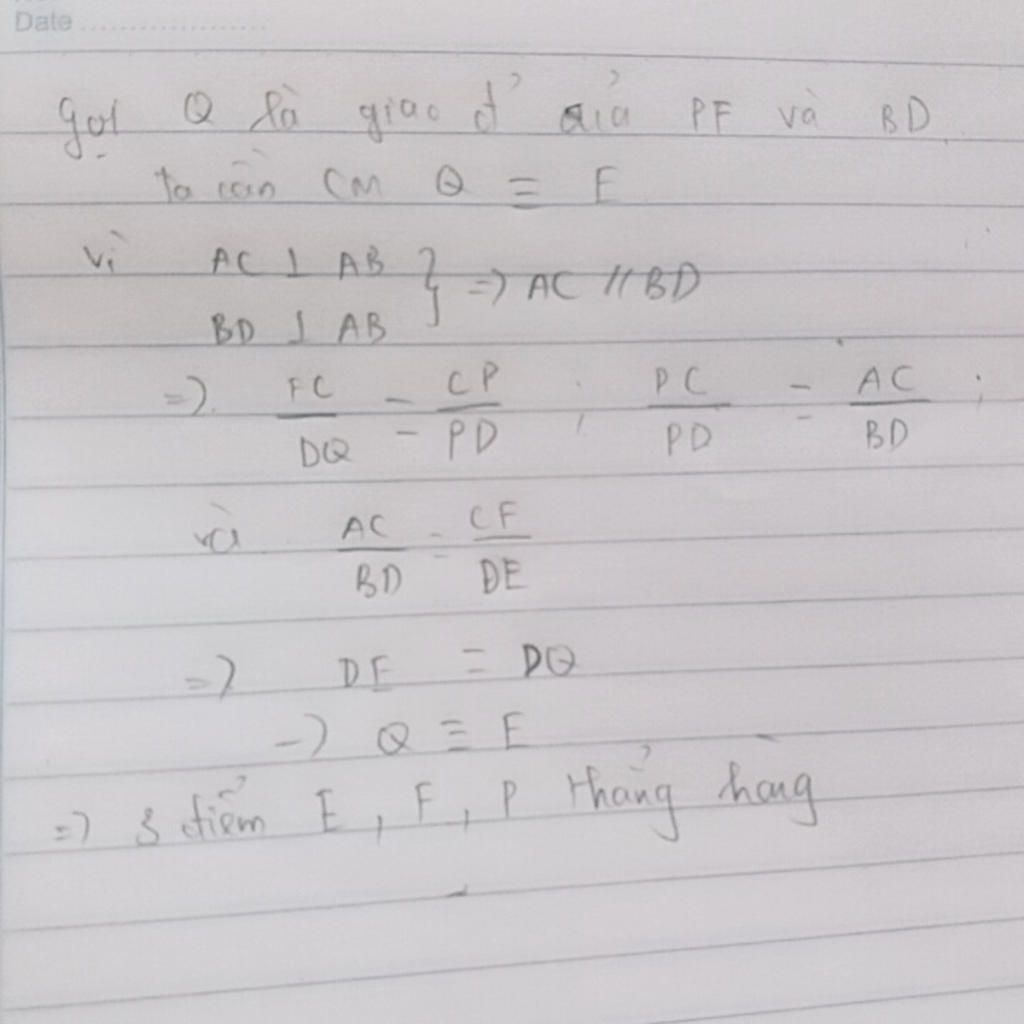 Date ....................
Gọi Q là giao đ' của PF và BD
ta cần CM Q ≡ E
Vì AC ⊥ AB } => AC // BD
BD ⊥ AB
=> FC/DQ = CP/PD ; PC/PD = AC/BD ;
và AC/BD = CF/DE
=> DE = DQ
-> Q ≡ E
=> 3 điểm E, F, P thẳng hàng